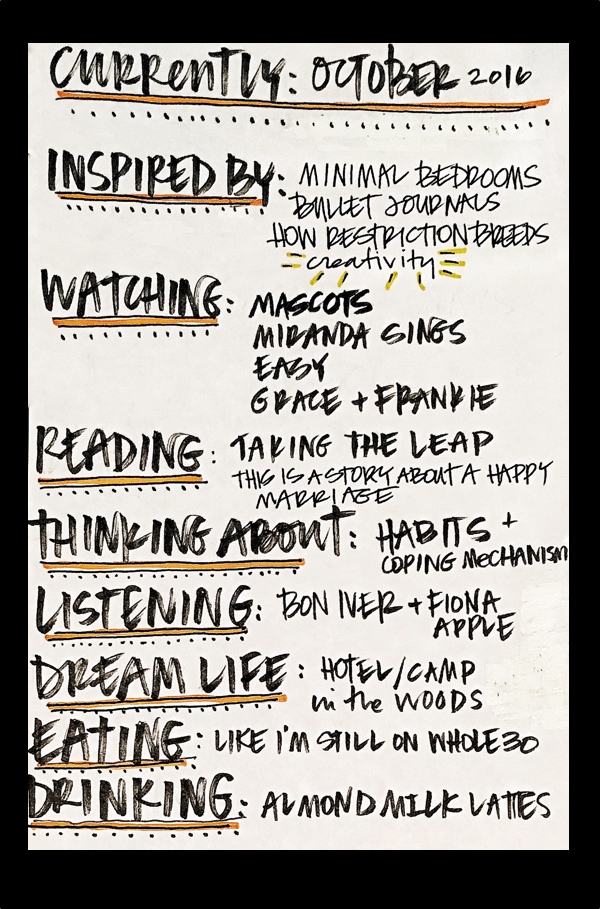 CURRENTLY: OCTOBER 2016
INSPIRED BY: MINIMAL BEDROOMS
BULLET JOURNALS
HOW RESTRICTION BREEDS
creativity
WATCHING: MASCOTS
MIRANDA SINGS
EASY
GRACE + FRANKIE
READING: TAKING THE LEAP
THIS IS A STORY ABOUT A HAPPY
MARRIAGE
THINKING ABOUT: HABITS +
COPING MECHANISM
LISTENING: BON IVER + FIONA
APPLE
DREAM LIFE: HOTEL/CAMP
in the WOODS
EATING: LIKE I'M STILL ON WHOLE30
DRINKING: ALMOND MILK LATTES